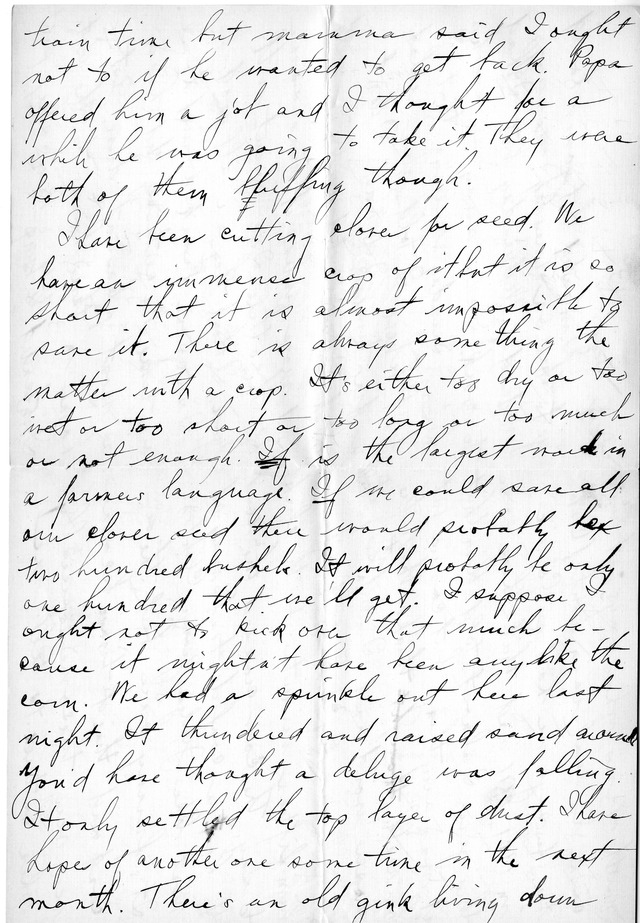 train time but mamma said I ought
not to if he wanted to get back. Papa
offered him a job and I thought for a
while he was going to take it. They were
both of them bluffing though.
I have been cutting clover for seed. We
have an immense crop of it but it is so
short that it is almost impossible to
save it. There is always something the
matter with a crop. It's either too dry or too
wet or too short or too long or too much
or not enough. If is the largest word in
a farmers language. If we could save all
our clover seed there would probably be
two hundred bushels. It will probably be only
one hundred that we'll get. I suppose I
ought not to kick over that much be-
cause it might n't have been any like the
corn. We had a sprinkle out here last
night. It thundered and raised sand around
You'd have thought a deluge was falling.
It only settled the top layer of dust. I have
hope of another one some time in the next
month. There's an old gink living down